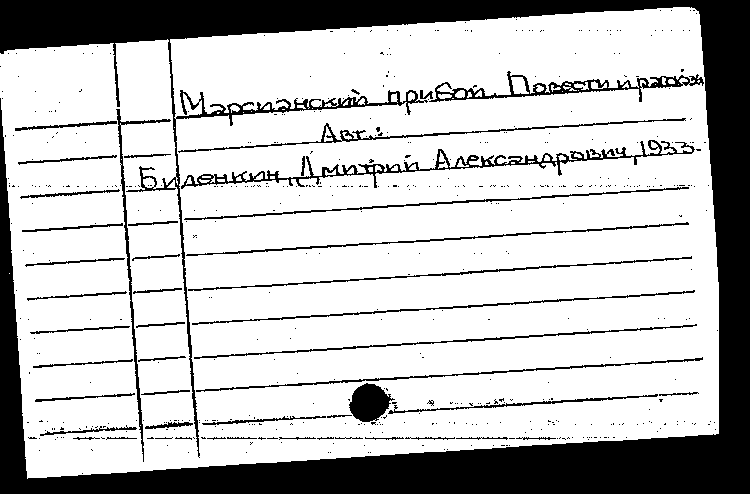 Марсианский прибой. Повести и рассказы
Авт.:
Биленкин, Дмитрий Александрович, 1933-